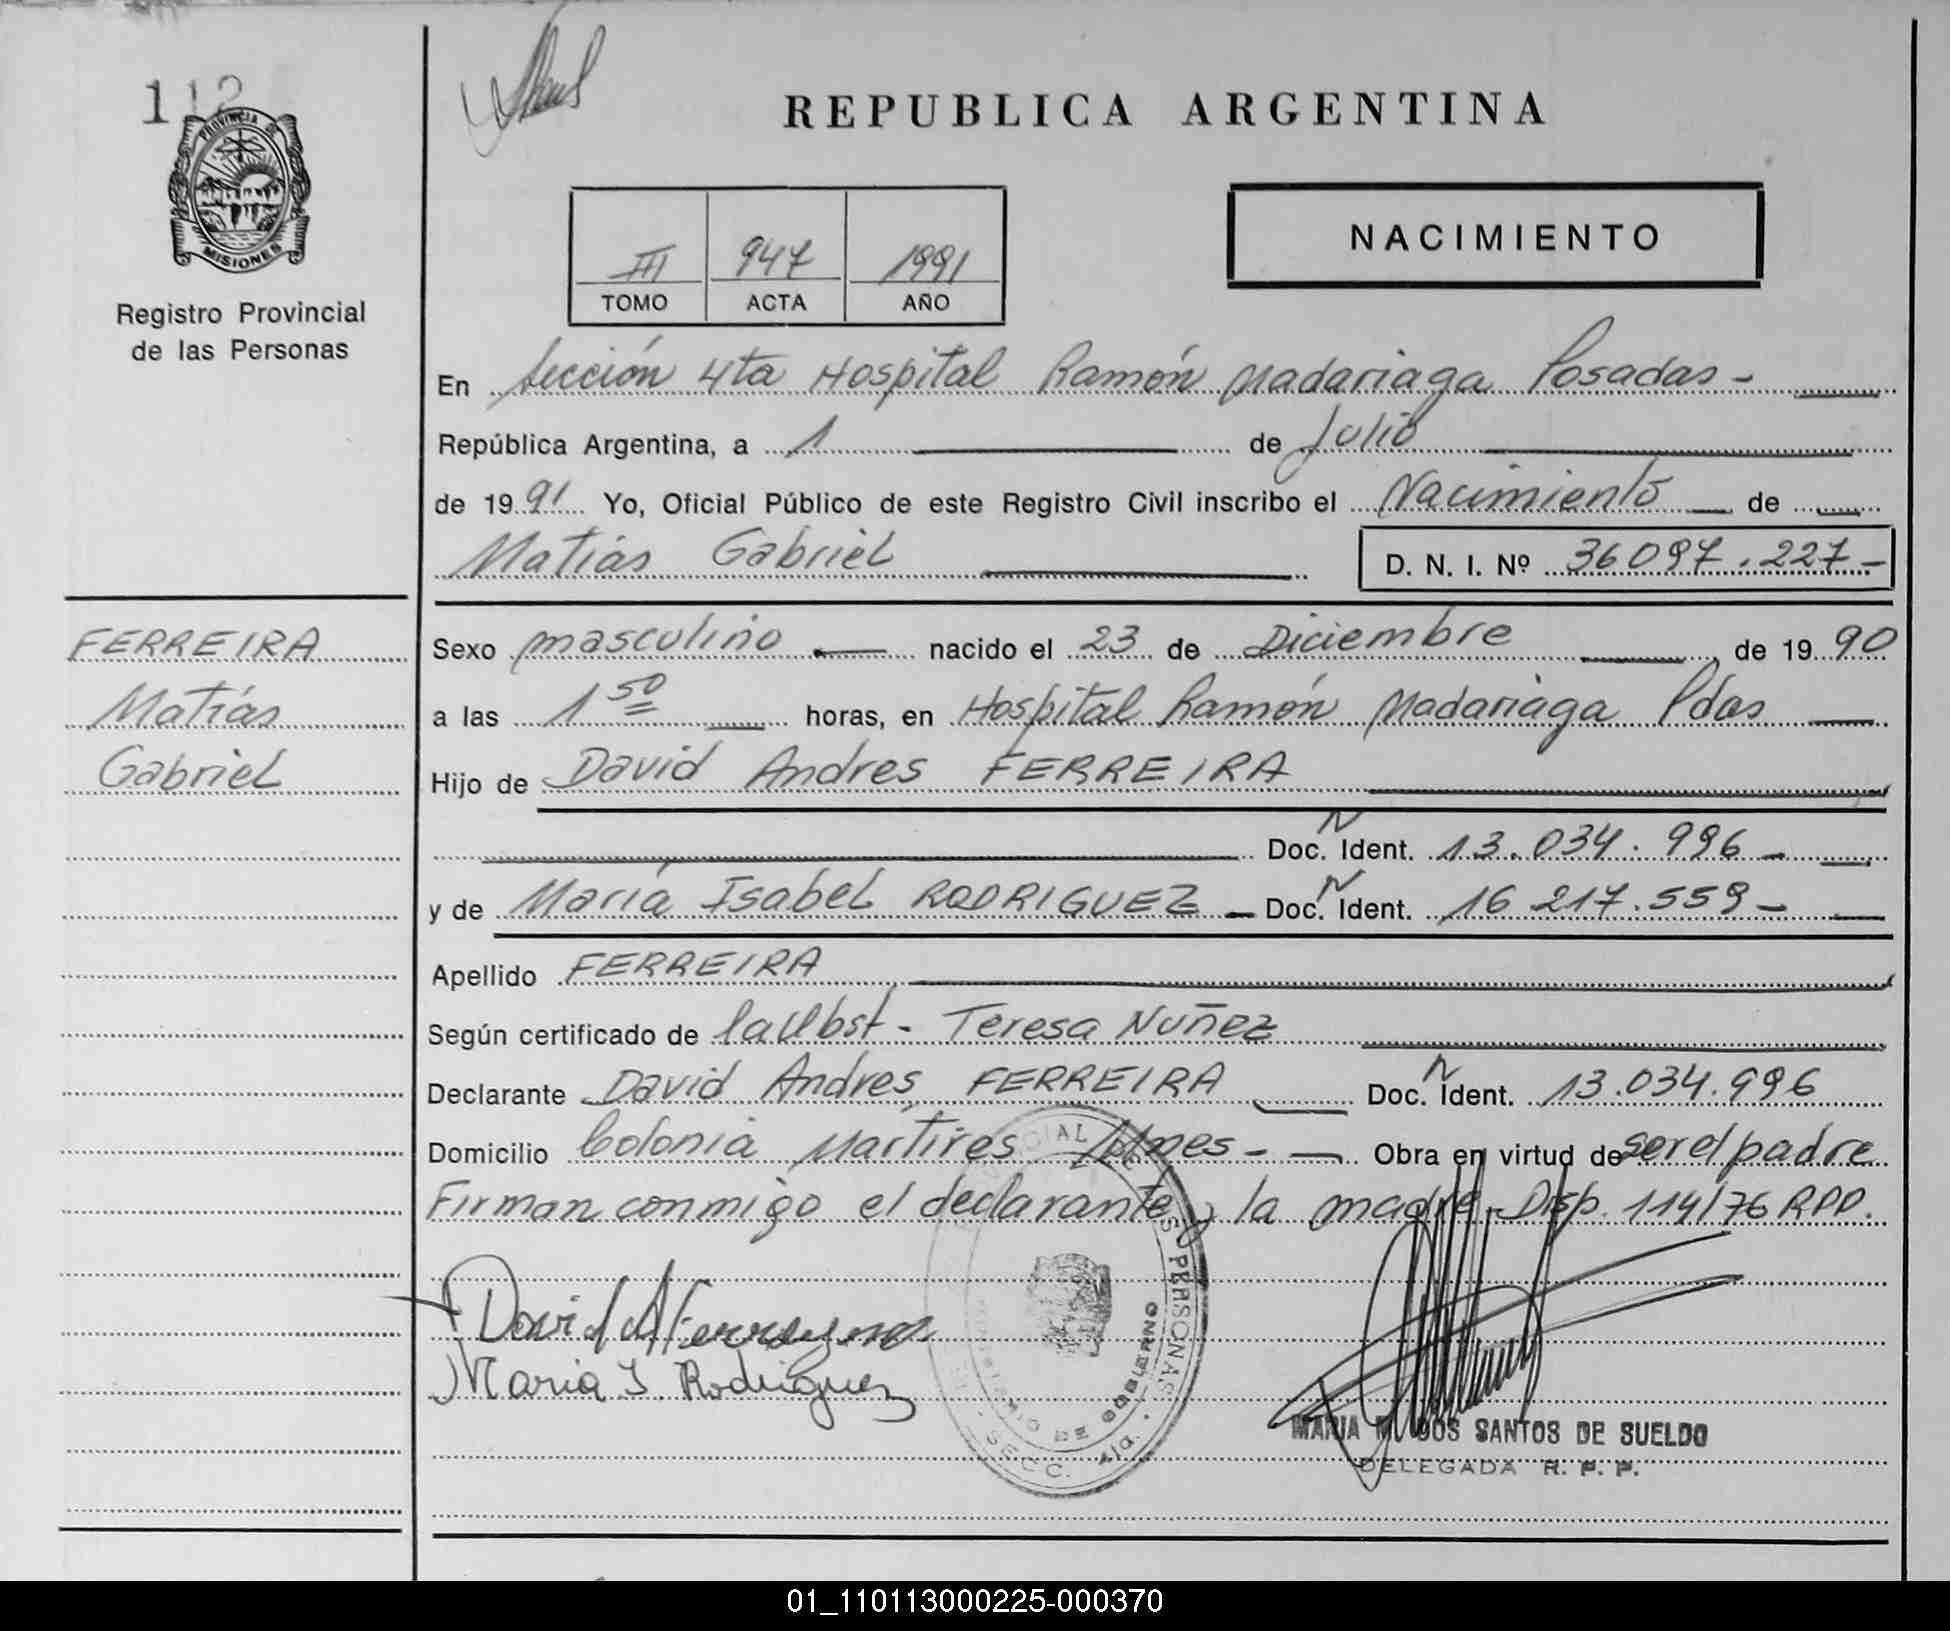 112
PROVINCIA DE
MISIONES
Registro Provincial
de las Personas
REPUBLICA ARGENTINA
III 947 1991
TOMO ACTA AÑO
NACIMIENTO
En Sección 4ta Hospital Ramón Madariaga Posadas -
República Argentina, a 1 de Julio
de 1991 Yo, Oficial Público de este Registro Civil inscribo el Nacimiento de
Matías Gabriel D. N. I. Nº 36097.227-
FERREIRA
Matías
Gabriel
Sexo masculino nacido el 23 de Diciembre de 1990
a las 1 50 horas, en Hospital Ramón Madariaga Pdas
Hijo de David Andres FERREIRA
Doc. N Ident. 13.034.996-
y de María Isabel RODRIGUEZ - Doc. N Ident. 16 217.559-
Apellido FERREIRA
Según certificado de la Obst - Teresa Nuñez
Declarante David Andres FERREIRA Doc. N Ident. 13.034.996
Domicilio Colonia Martires Mnes - Obra en virtud de ser el padre
Firman conmigo el declarante y la madre - Disp. 114/76 RPP.
David A Ferreyra
Maria I. Rodriguez
PERSONAS
DE GOBIERNO
SECC. 4ta.
MARIA M. DOS SANTOS DE SUELDO
DELEGADA R. P. P.
01_110113000225-000370